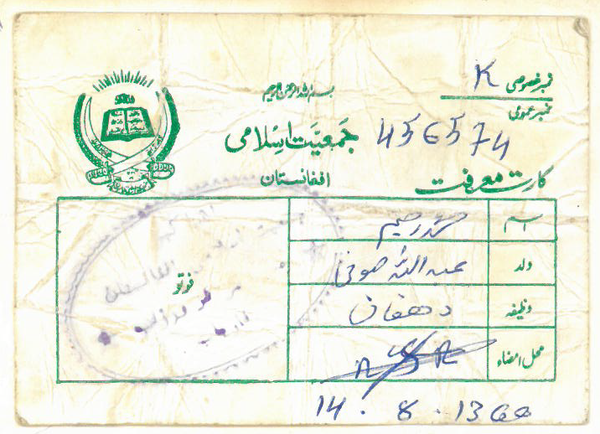 بسم الله الرحمن الرحیم
نمبر خصوصی K
نمبر عمومی 456574
جمعیت اسلامی
افغانستان
کارت معرفت
اسم محمد رحیم
ولد عبدالله صوفی
وظیفه دهقان
محل امضاء
فوتو
14.8.1366